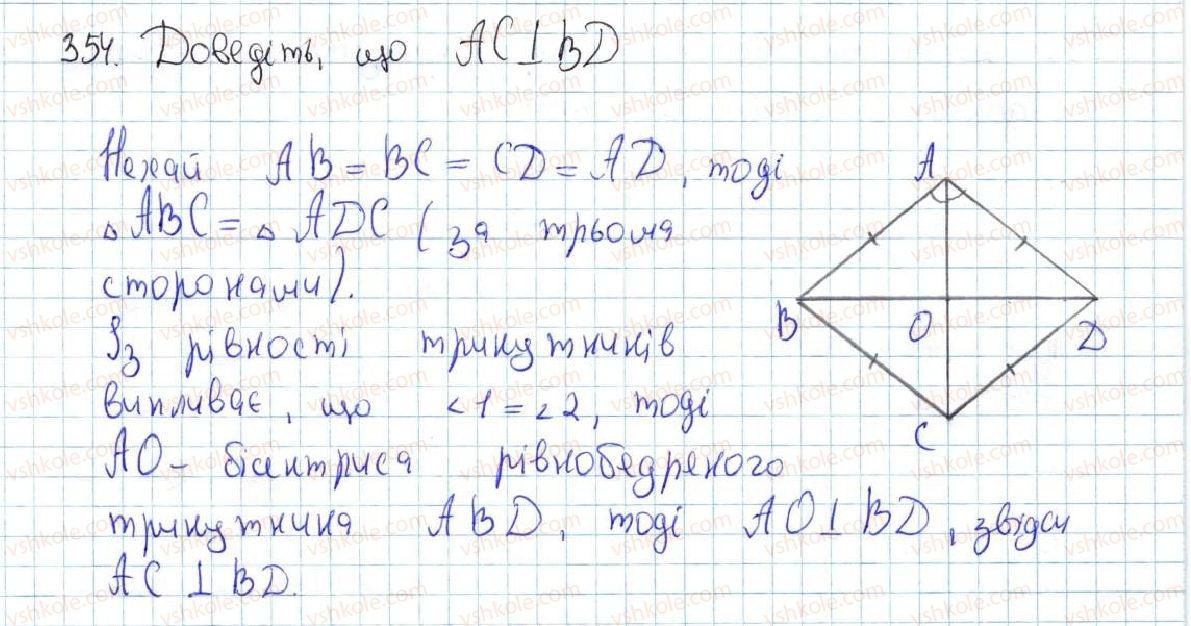 354. Доведіть, що AC⊥BD
Нехай AB = BC = CD = AD, тоді
△ABC = △ADC (за трьома
сторонами).
Із рівності трикутників
випливає, що ∠1 = ∠2, тоді
AO - бісектриса рівнобедреного
трикутника ABD, тоді AO⊥BD, звідси
AC ⊥ BD.
A
B
O
D
C
vshkole.com